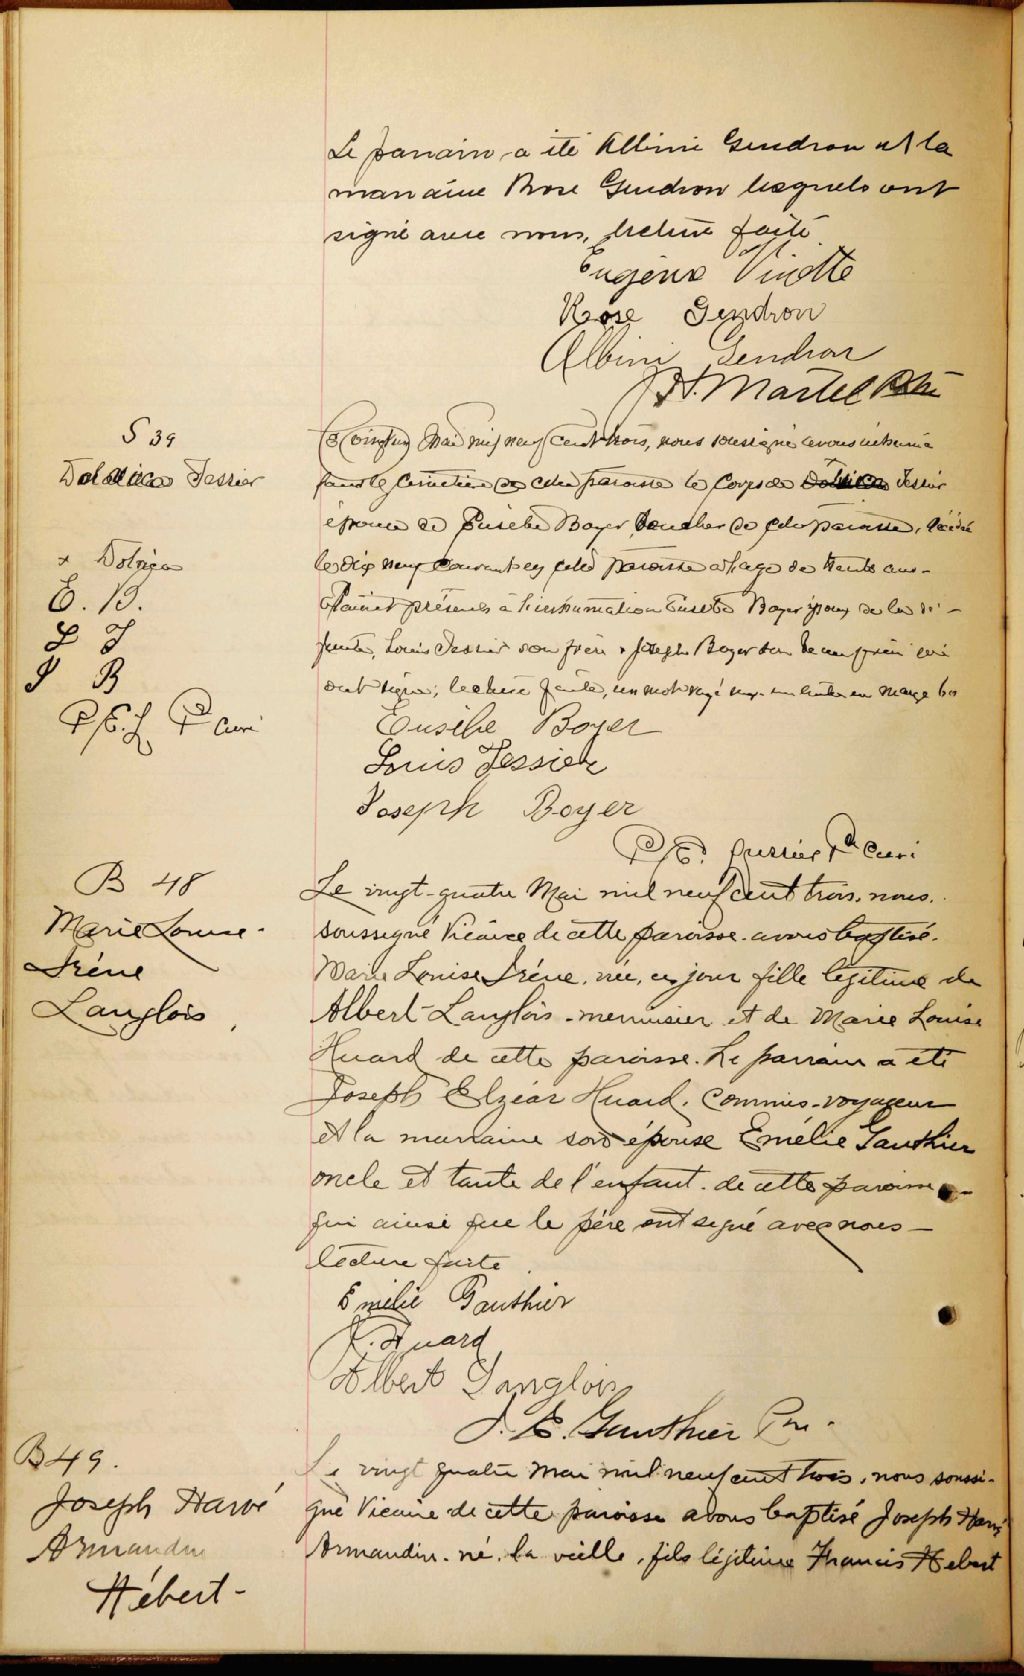 Le parrain a été Albini Gendron et la
marraine Rose Gendron lesquels ont
signé avec nous, lecture faite
Eugène Vinette
Rose Gendron
Albini Gendron
J. H. Martel Ptre
S 39
Tessier
x Dolrica
E. B.
L T
J B
P/E. L Ptre Curé
Ce vingt un Mai mil neuf cent trois, nous soussigné avons inhumé
dans le Cimetière de cette paroisse le Corps de Tessier
épouse de Eusèbe Boyer boucher de cette paroisse, décédée
le dix neuf courant en cette paroisse à l'age de trente ans
Etaient présents à l'inhumation Eusèbe Boyer époux de la dé-
funte, Louis Tessier son frère & Joseph Boyer son beau frère qui
ont signé; lecture faite, un mot rayé nul en marge bon
Eusèbe Boyer
Louis Tessier
Joseph Boyer
P/E. Lussier Ptre Curé
B 48
Marie Louise-
Irène
Langlois
Le vingt-quatre Mai mil neuf cent trois, nous
soussigné Vicaire de cette paroisse avons baptisé
Marie Louise Irène, née, ce jour fille légitime de
Albert Langlois menuisier et de Marie Louise
Huard de cette paroisse. Le parrain a été
Joseph Elzéar Huard, commis-voyageur
et la marraine son épouse Emélie Gauthier
oncle et tante de l'enfant de cette paroisse
qui ainsi que le père ont signé avec nous-
lecture faite
Emélie Gauthier
J. Huard
Albert Langlois
J. E. Gauthier Ptre
B 49.
Joseph Harvé
Armandin
Hébert-
Le vingt quatre mai mil neuf cent trois, nous soussi-
gné Vicaire de cette paroisse avons baptisé Joseph Harvé
Armandin né la veille, fils légitime Francis Hebert